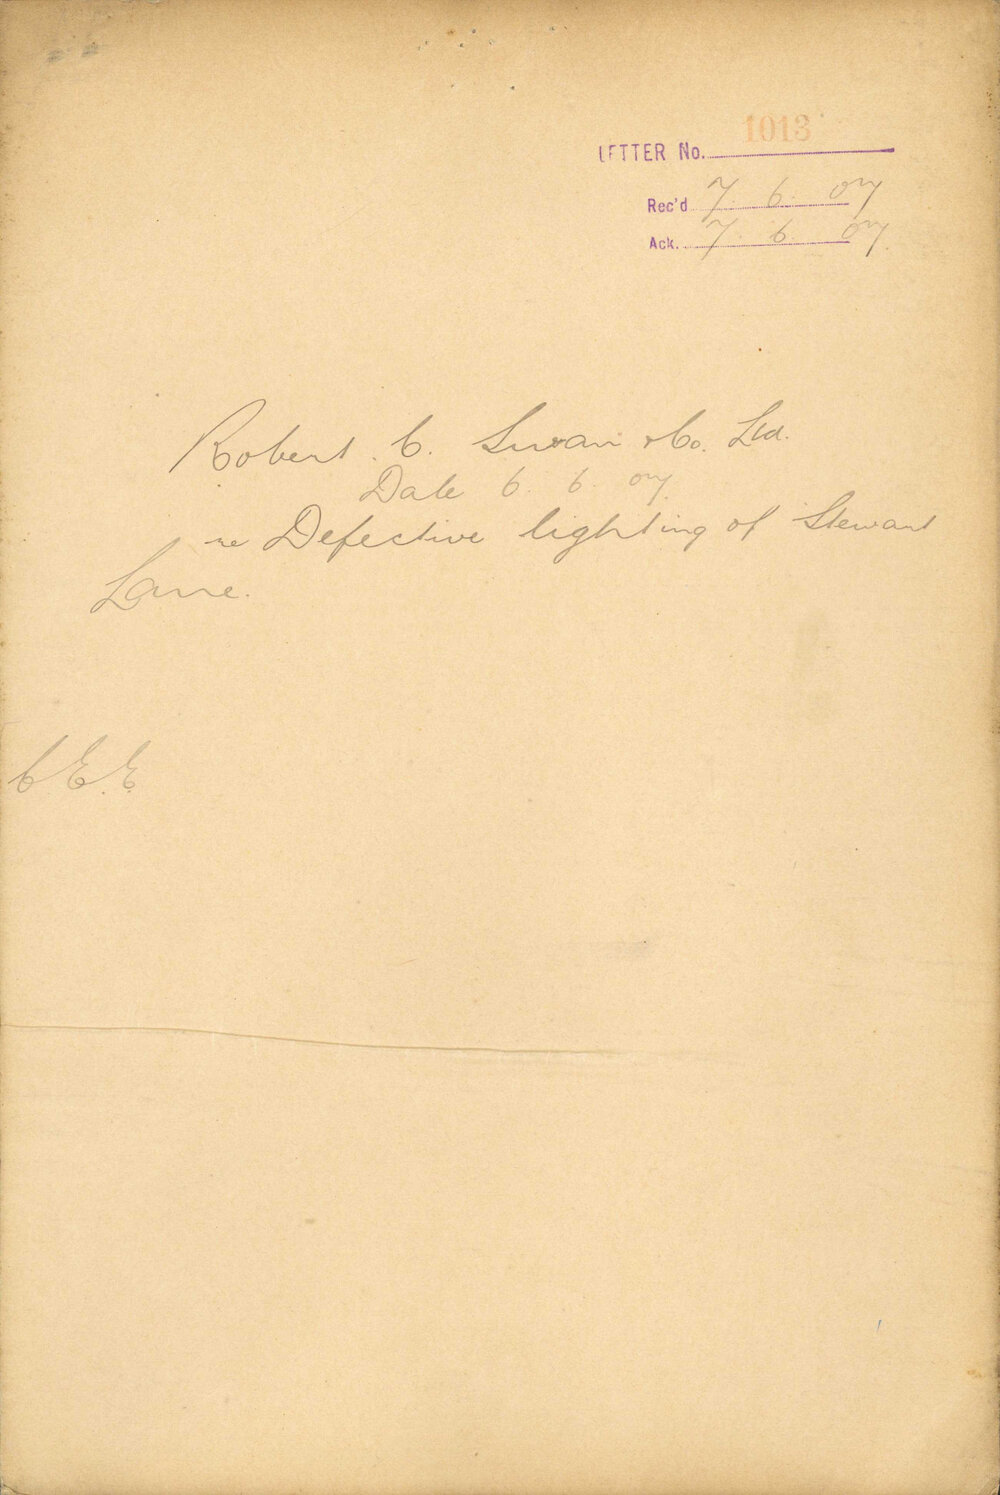 1013
LETTER No.
Rec'd 7. 6. 07
Ack. 7. 6. 07.
Robert. C. Swan & Co. Ltd.
Date 6. 6. 07.
re Defective lighting of Stewart
Lane.
C.E.E.